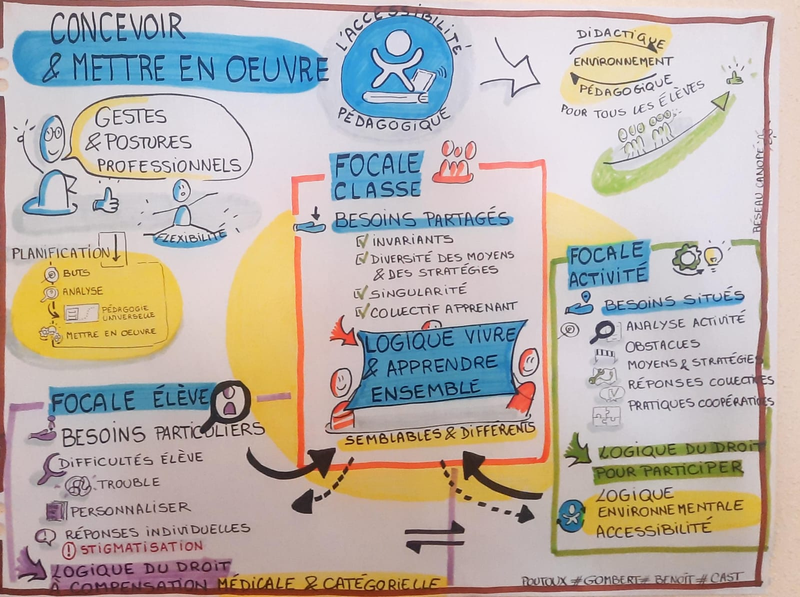 CONCEVOIR
& METTRE EN OEUVRE
L'ACCESSIBILITÉ
PÉDAGOGIQUE
DIDACTIQUE
ENVIRONNEMENT
PÉDAGOGIQUE
POUR TOUS LES ÉLÈVES
RÉSEAU CANOPÉ
GESTES
& POSTURES
PROFESSIONNELS
FLEXIBILITÉ
PLANIFICATION
BUTS
ANALYSE
PÉDAGOGIE
UNIVERSELLE
METTRE EN OEUVRE
FOCALE
CLASSE
BESOINS PARTAGÉS
INVARIANTS
DIVERSITÉ DES MOYENS
& DES STRATÉGIES
SINGULARITÉ
COLLECTIF APPRENANT
LOGIQUE VIVRE
& APPRENDRE
ENSEMBLE
SEMBLABLES & DIFFÉRENTS
FOCALE
ACTIVITÉ
BESOINS SITUÉS
ANALYSE ACTIVITÉ
OBSTACLES
MOYENS & STRATÉGIES
RÉPONSES COLLECTIVES
PRATIQUES COOPÉRATIVES
LOGIQUE DU DROIT
POUR PARTICIPER
LOGIQUE
ENVIRONNEMENTALE
ACCESSIBILITÉ
FOCALE ÉLÈVE
BESOINS PARTICULIERS
DIFFICULTÉS ÉLÈVE
TROUBLE
PERSONNALISER
RÉPONSES INDIVIDUELLES
! STIGMATISATION
LOGIQUE DU DROIT
À COMPENSATION MÉDICALE & CATÉGORIELLE
POUTOUX # GOMBERT # BENOÎT # CAST